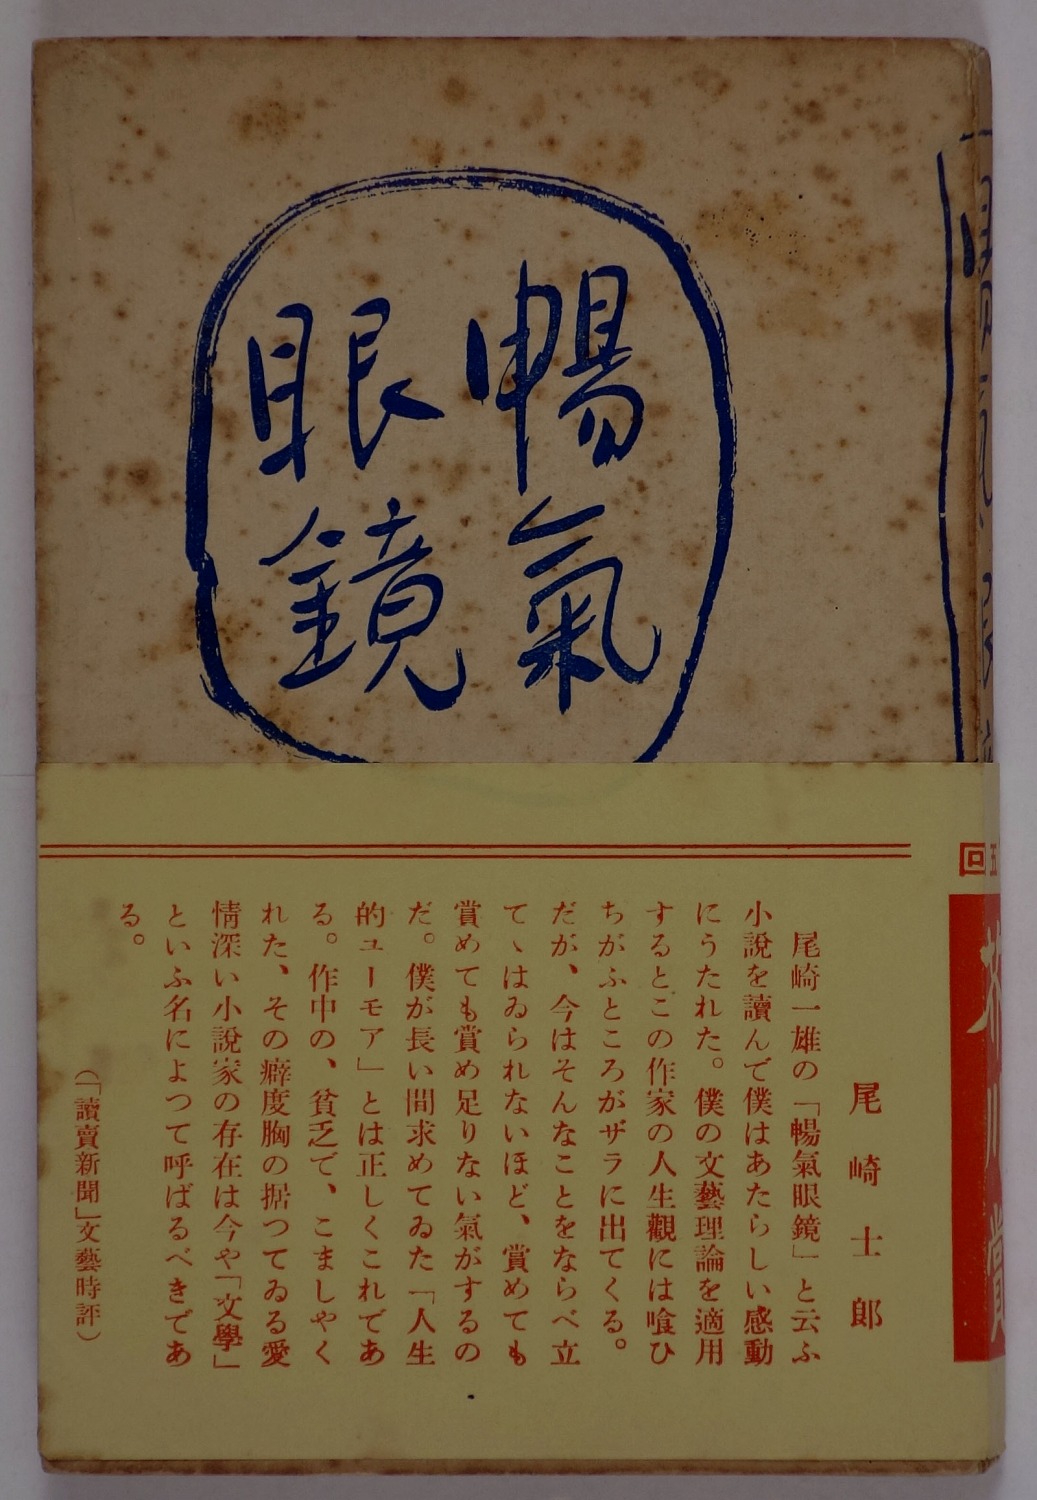 暢氣
眼鏡
五回
芥川賞
尾崎士郎
尾崎一雄の「暢氣眼鏡」と云ふ
小說を讀んで僕はあたらしい感動
にうたれた。僕の文藝理論を適用
するとこの作家の人生觀には喰ひ
ちがふところがザラに出てくる。
だが、今はそんなことをならべ立
てゝはゐられないほど、賞めても
賞めても賞め足りない氣がするの
だ。僕が長い間求めてゐた「人生
的ユーモア」とは正しくこれであ
る。作中の、貧乏で、こましやく
れた、その癖度胸の据つてゐる愛
情深い小說家の存在は今や「文學」
といふ名によつて呼ばるべきであ
る。
（「讀賣新聞」文藝時評）